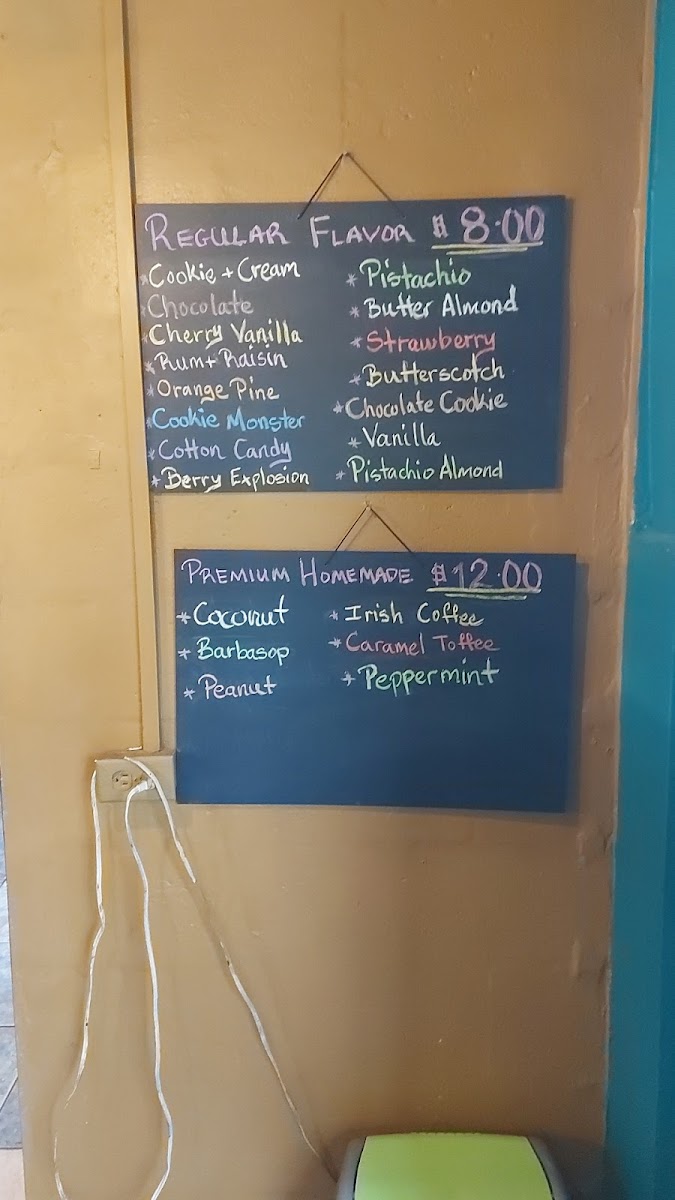 REGULAR FLAVOR $ 8.00
*Cookie + Cream
*Chocolate
*Cherry Vanilla
*Rum + Raisin
*Orange Pine
*Cookie Monster
*Cotton Candy
*Berry Explosion
*Pistachio
*Butter Almond
*Strawberry
*Butterscotch
*Chocolate Cookie
*Vanilla
*Pistachio Almond
PREMIUM HOMEMADE $12.00
*Coconut
*Barbasop
*Peanut
*Irish Coffee
*Caramel Toffee
*Peppermint